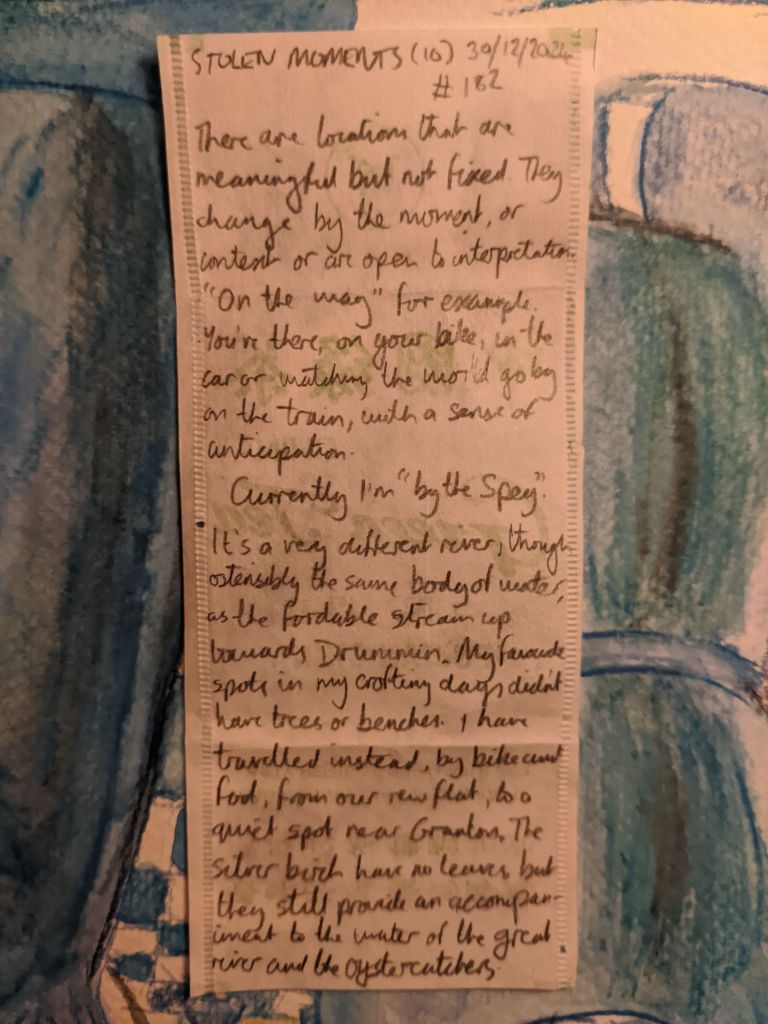 STOLEN MOMENTS (10) 30/12/2024
# 182
There are locations that are
meaningful but not fixed. They
change by the moment, or
context or are open to interpretation.
"On the way" for example.
You're there, on your bike, in the
car or watching the world go by
on the train, with a sense of
anticipation.
Currently I'm "by the Spey".
It's a very different river, though
ostensibly the same body of water,
as the fordable stream up
towards Drummin. My favourite
spots in my crofting days didn't
have trees or benches. I have
travelled instead, by bike and
foot, from our new flat, to a
quiet spot near Grantown. The
silver birch have no leaves but
they still provide an accompan-
iment to the water of the great
river and the oystercatchers.